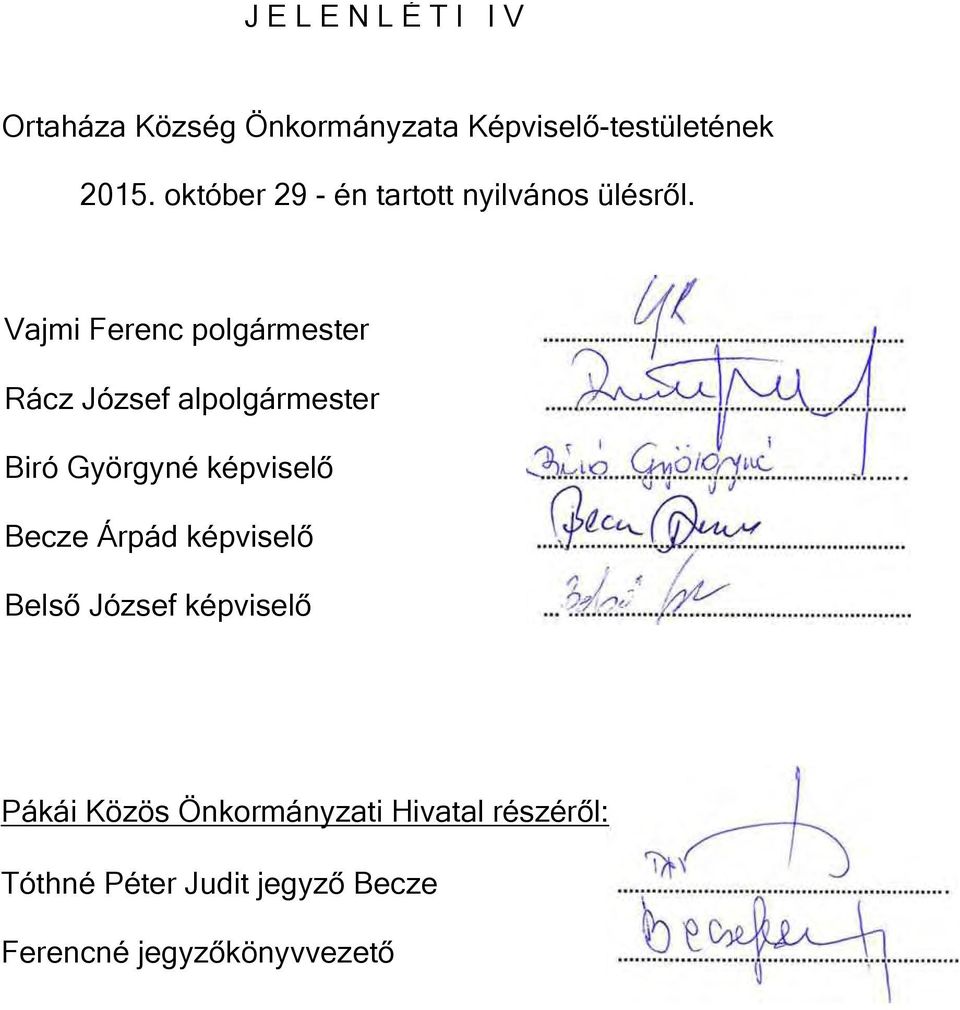 JELENLÉTI IV
Ortaháza Község Önkormányzata Képviselő-testületének
2015. október 29 - én tartott nyilvános ülésről.
Vajmi Ferenc polgármester
Rácz József alpolgármester
Biró Györgyné képviselő Biró Györgyné
Becze Árpád képviselő
Belső József képviselő Belső
Pákái Közös Önkormányzati Hivatal részéről:
Tóthné Péter Judit jegyző Becze
Ferencné jegyzőkönyvvezető